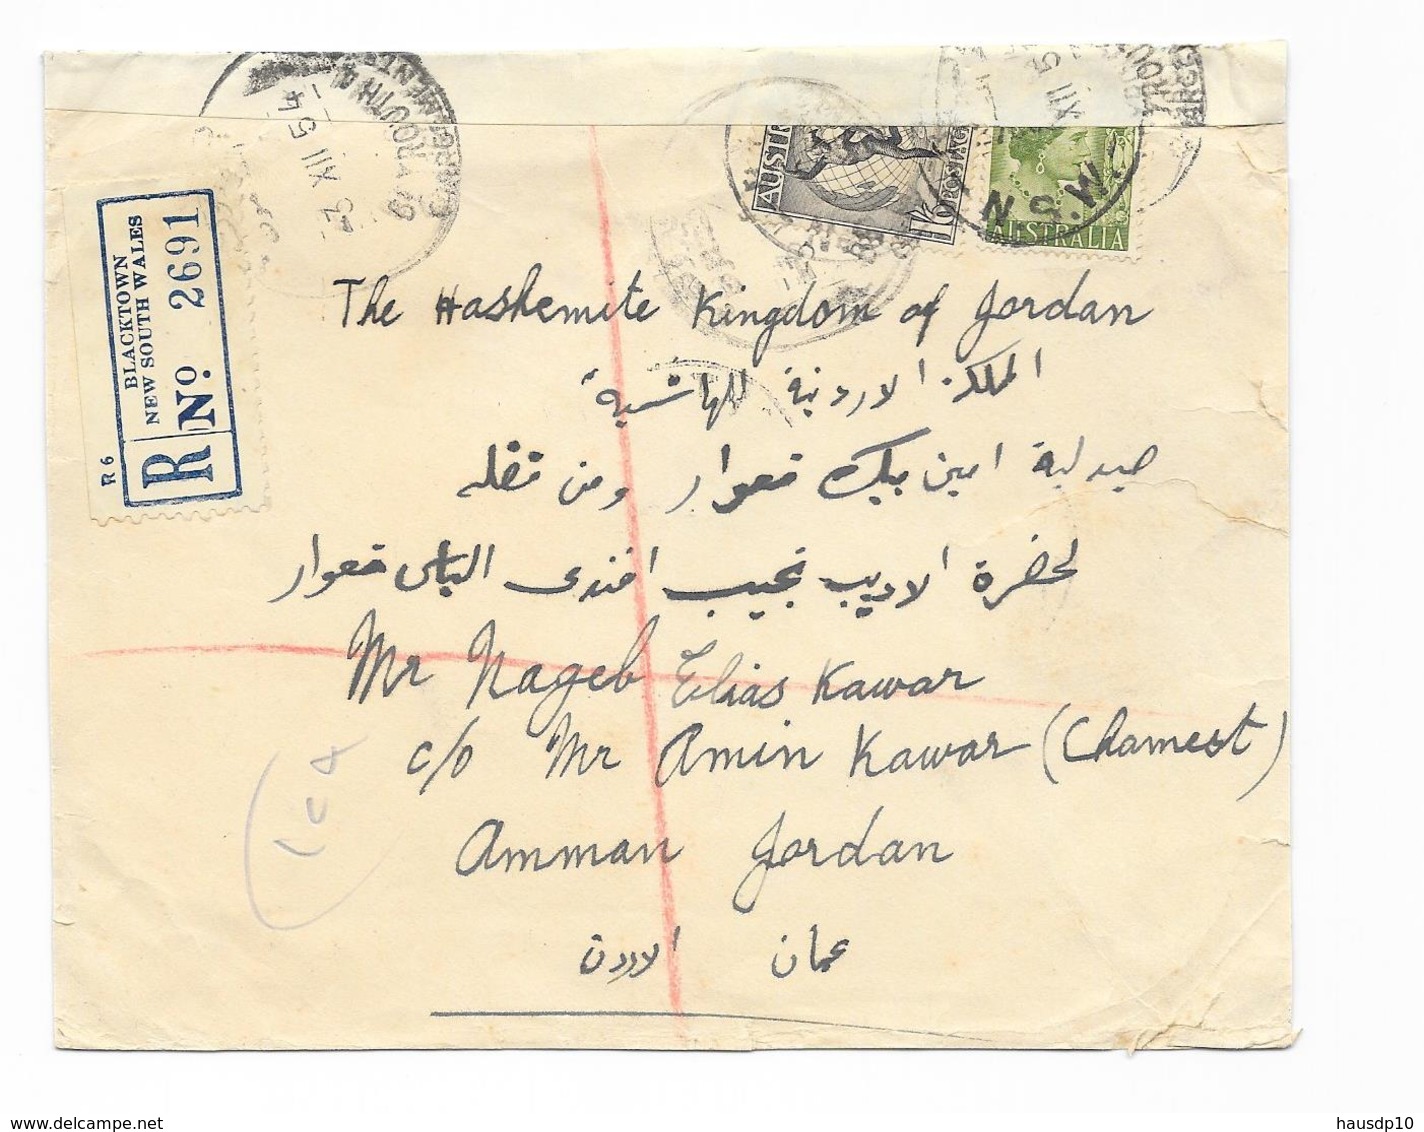 23 XII 54
AUSTRALIA
N.S.W.
R 6
BLACKTOWN
NEW SOUTH WALES
R No. 2691
The Hashemite Kingdom of Jordan
المملكة الاردنية الهاشمية
صيدلية امين بيك قعوار ومن فضله
لحضرة الاديب نجيب افندي الياس قعوار
Mr Nageb Elias Kawar
c/o Mr Amin Kawar (Chamest)
Amman Jordan
عمان الاردن
www.delcampe.net
hausdp10